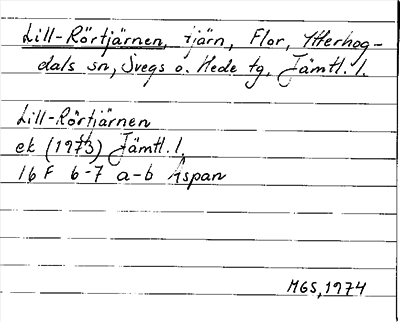 Lill-Rörtjärnen, tjärn, Flor, Ytterhog-
dals sn, Svegs o. Hede tg, Jämtl. l.
Lill-Rörtjärnen
ek (1973) Jämtl. l.
16 F 6-7 a-b Åspan
MGS, 1974